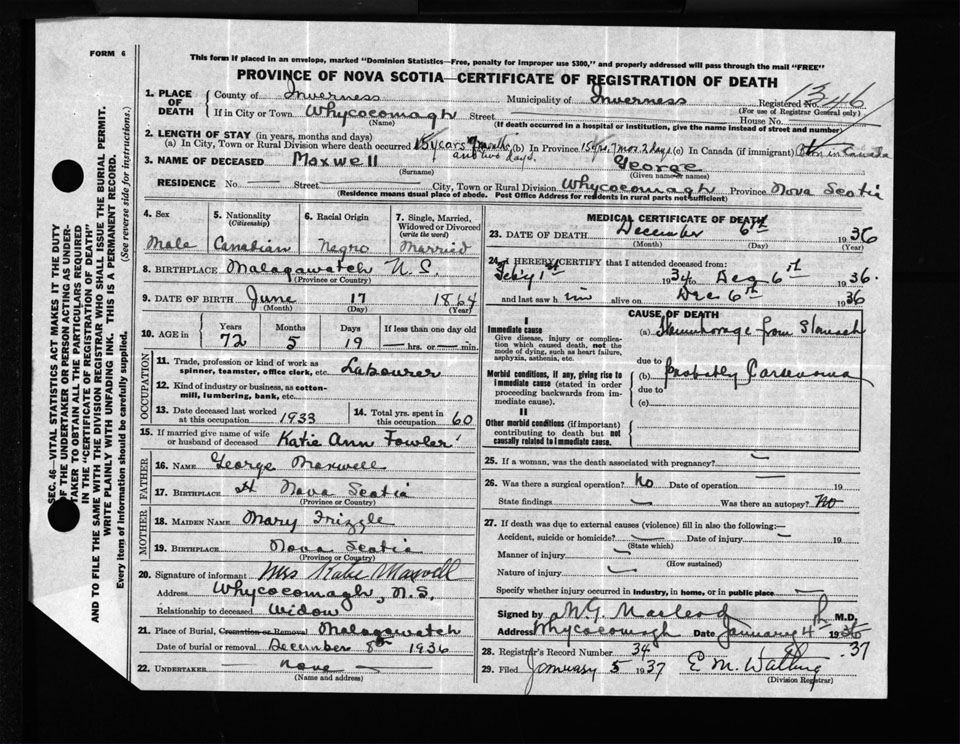 FORM 6
This form if placed in an envelope, marked "Dominion Statistics—Free, penalty for improper use $300," and properly addressed will pass through the mail "FREE"
PROVINCE OF NOVA SCOTIA—CERTIFICATE OF REGISTRATION OF DEATH
1. PLACE OF DEATH
County of Inverness Municipality of Inverness Registered No. 1346
(For use of Registrar General only)
If in City or Town Whycocomagh Street House No.
(Name) (If death occurred in a hospital or institution, give the name instead of street and number)
2. LENGTH OF STAY (in years, months and days)
(a) In City, Town or Rural Division where death occurred 15 years 7 months and two days. (b) In Province 15 yrs. 7 mos. 2 days. (c) In Canada (if immigrant) Born in Canada
3. NAME OF DECEASED Maxwell George
(Surname) (Given name or names)
RESIDENCE No. — Street — City, Town or Rural Division Whycocomagh Province Nova Scotia
(Residence means usual place of abode. Post Office Address for residents in rural parts not sufficient)
4. Sex
Male
5. Nationality
(Citizenship)
Canadian
6. Racial Origin
Negro
7. Single, Married, Widowed or Divorced
(write the word)
Married
8. BIRTHPLACE Malagawatch N.S.
(Province or Country)
9. DATE OF BIRTH June 17 1864
(Month) (Day) (Year)
10. AGE in
Years Months Days If less than one day old
72 5 19 — hrs. or — min.
OCCUPATION
11. Trade, profession or kind of work as spinner, teamster, office clerk, etc. Labourer
12. Kind of industry or business, as cotton-mill, lumbering, bank, etc.
13. Date deceased last worked at this occupation 1933
14. Total yrs. spent in this occupation 60
15. If married give name of wife or husband of deceased Katie Ann Fowler
FATHER
16. NAME George Maxwell
17. BIRTHPLACE Nova Scotia
(Province or Country)
MOTHER
18. MAIDEN NAME Mary Frizzle
19. BIRTHPLACE Nova Scotia
(Province or Country)
20. Signature of informant Mrs Katie Maxwell
Address Whycocomagh, N.S.
Relationship to deceased Widow
21. Place of Burial, Cremation or Removal Malagawatch
Date of burial or removal December 8th 1936
22. UNDERTAKER — none —
(Name and address)
MEDICAL CERTIFICATE OF DEATH
23. DATE OF DEATH December 6th 1936
(Month) (Day) (Year)
24. I HEREBY CERTIFY that I attended deceased from:
1st 1934 to Dec 6th 1936.
and last saw him alive on Dec 6th 1936
CAUSE OF DEATH
I
Immediate cause
Give disease, injury or complication which caused death, not the mode of dying, such as heart failure, asphyxia, asthenia, etc.
(a) Haemhorage from Stomach
due to
Morbid conditions, if any, giving rise to immediate cause (stated in order proceeding backwards from immediate cause).
(b) Probably Carcinoma
due to
(c)
II
Other morbid conditions (if important) contributing to death but not causally related to immediate cause.
25. If a woman, was the death associated with pregnancy? —
26. Was there a surgical operation? No Date of operation — 19
State findings — Was there an autopsy? No
27. If death was due to external causes (violence) fill in also the following:—
Accident, suicide or homicide? — Date of injury — 19
(State which)
Manner of injury —
(How sustained)
Nature of injury —
Specify whether injury occurred in industry, in home, or in public place —
Signed by Macleod M.D.
Address Whycocomagh Date January 4th 1936 37
28. Registrar's Record Number 34
29. Filed January 5 1937 E. M.
(Division Registrar)
SEC. 46—VITAL STATISTICS ACT MAKES IT THE DUTY
OF THE UNDERTAKER OR PERSON ACTING AS UNDER-
TAKER TO OBTAIN ALL THE PARTICULARS REQUIRED
IN THE "CERTIFICATE OF REGISTRATION OF DEATH"
AND TO FILE THE SAME WITH THE DIVISION REGISTRAR WHO SHALL ISSUE THE BURIAL PERMIT.
WRITE PLAINLY WITH UNFADING INK. THIS IS A PERMANENT RECORD.
Every item of information should be carefully supplied. (See reverse side for instructions.)